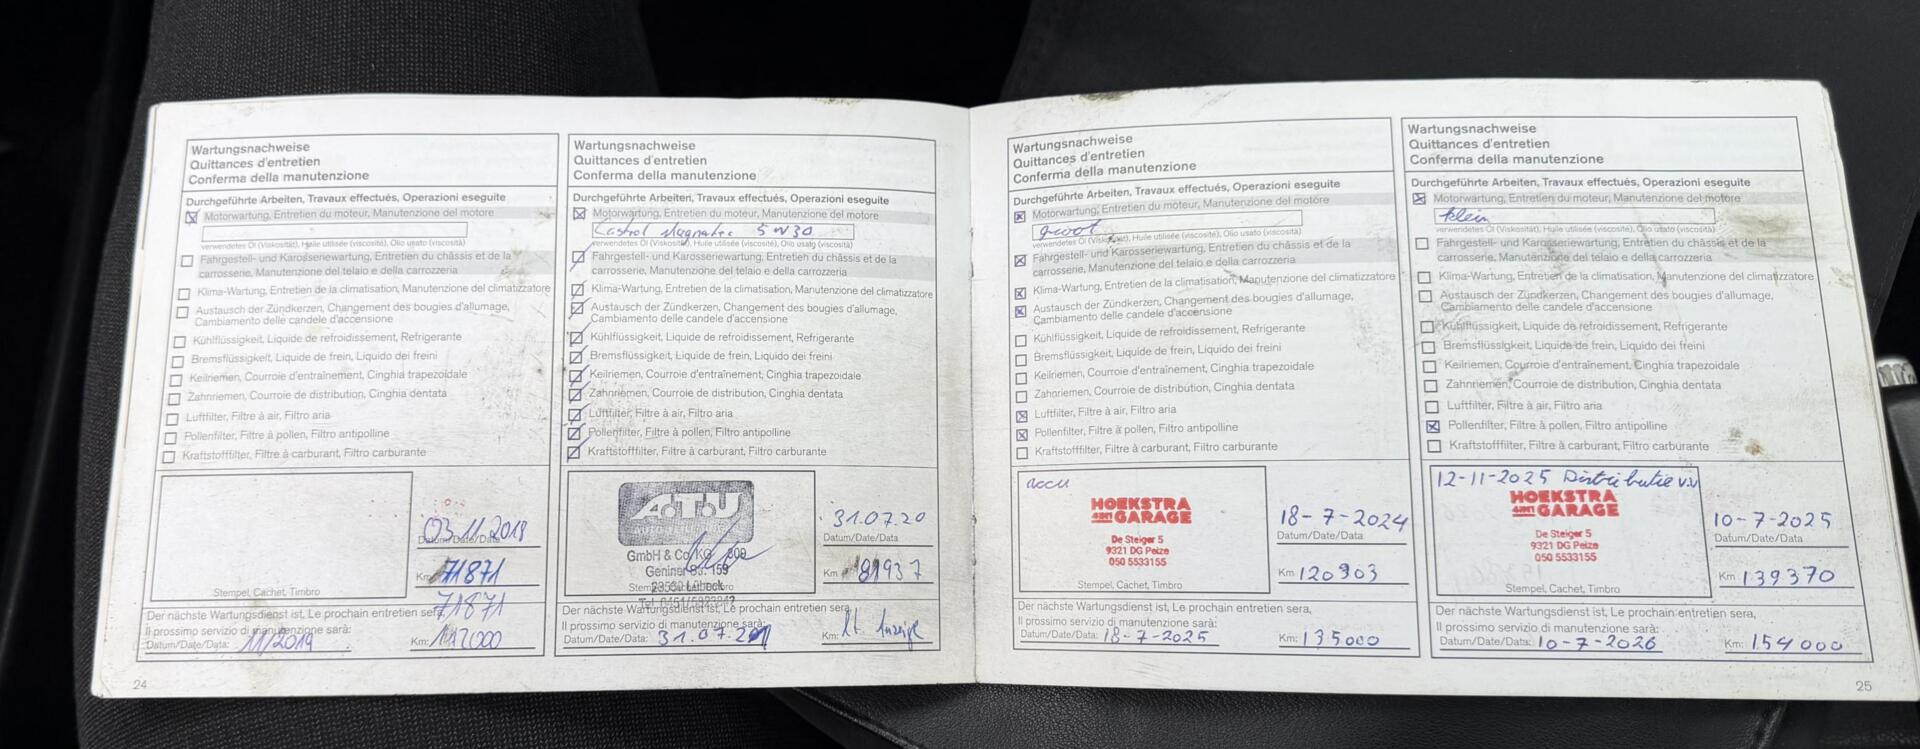 Wartungsnachweise
Quittances d'entretien
Conferma della manutenzione
Durchgeführte Arbeiten, Travaux effectués, Operazioni eseguite
Motorwartung, Entretien du moteur, Manutenzione del motore
verwendetes Öl (Viskosität), Huile utilisée (viscosité), Olio usato (viscosità)
Fahrgestell- und Karosseriewartung, Entretien du châssis et de la
carrosserie, Manutenzione del telaio e della carrozzeria
Klima-Wartung, Entretien de la climatisation, Manutenzione del climatizzatore
Austausch der Zündkerzen, Changement des bougies d'allumage,
Cambiamento delle candele d'accensione
Kühlflüssigkeit, Liquide de refroidissement, Refrigerante
Bremsflüssigkeit, Liquide de frein, Liquido dei freini
Keilriemen, Courroie d'entraînement, Cinghia trapezoidale
Zahnriemen, Courroie de distribution, Cinghia dentata
Luftfilter, Filtre à air, Filtro aria
Pollenfilter, Filtre à pollen, Filtro antipolline
Kraftstofffilter, Filtre à carburant, Filtro carburante
Datum/Date/Data
Km 71871
71871
Stempel, Cachet, Timbro
Der nächste Wartungsdienst ist, Le prochain entretien sera,
Il prossimo servizio di manutenzione sarà:
Datum/Date/Data: 11/2019
Km:
24
Wartungsnachweise
Quittances d'entretien
Conferma della manutenzione
Durchgeführte Arbeiten, Travaux effectués, Operazioni eseguite
Motorwartung, Entretien du moteur, Manutenzione del motore
Castrol Magnatec 5W30
verwendetes Öl (Viskosität), Huile utilisée (viscosité), Olio usato (viscosità)
Fahrgestell- und Karosseriewartung, Entretien du châssis et de la
carrosserie, Manutenzione del telaio e della carrozzeria
Klima-Wartung, Entretien de la climatisation, Manutenzione del climatizzatore
Austausch der Zündkerzen, Changement des bougies d'allumage,
Cambiamento delle candele d'accensione
Kühlflüssigkeit, Liquide de refroidissement, Refrigerante
Bremsflüssigkeit, Liquide de frein, Liquido dei freini
Keilriemen, Courroie d'entraînement, Cinghia trapezoidale
Zahnriemen, Courroie de distribution, Cinghia dentata
Luftfilter, Filtre à air, Filtro aria
Pollenfilter, Filtre à pollen, Filtro antipolline
Kraftstofffilter, Filtre à carburant, Filtro carburante
A.T.U
GmbH & Co. KG
Geniner Str. 159
23560 Lübeck
31.07.20
Datum/Date/Data
Km 81937
Stempel, Cachet, Timbro
Der nächste Wartungsdienst ist, Le prochain entretien sera,
Il prossimo servizio di manutenzione sarà:
Datum/Date/Data: 31.07.21
Km: lt. Anzeige
Wartungsnachweise
Quittances d'entretien
Conferma della manutenzione
Durchgeführte Arbeiten, Travaux effectués, Operazioni eseguite
Motorwartung, Entretien du moteur, Manutenzione del motore
groot
verwendetes Öl (Viskosität), Huile utilisée (viscosité), Olio usato (viscosità)
Fahrgestell- und Karosseriewartung, Entretien du châssis et de la
carrosserie, Manutenzione del telaio e della carrozzeria
Klima-Wartung, Entretien de la climatisation, Manutenzione del climatizzatore
Austausch der Zündkerzen, Changement des bougies d'allumage,
Cambiamento delle candele d'accensione
Kühlflüssigkeit, Liquide de refroidissement, Refrigerante
Bremsflüssigkeit, Liquide de frein, Liquido dei freini
Keilriemen, Courroie d'entraînement, Cinghia trapezoidale
Zahnriemen, Courroie de distribution, Cinghia dentata
Luftfilter, Filtre à air, Filtro aria
Pollenfilter, Filtre à pollen, Filtro antipolline
Kraftstofffilter, Filtre à carburant, Filtro carburante
accu
HOEKSTRA
GARAGE
De Steiger 5
9321 DG Peize
050 5533155
18-7-2024
Datum/Date/Data
Km 120903
Stempel, Cachet, Timbro
Der nächste Wartungsdienst ist, Le prochain entretien sera,
Il prossimo servizio di manutenzione sarà:
Datum/Date/Data: 18-7-2025
Km: 135000
Wartungsnachweise
Quittances d'entretien
Conferma della manutenzione
Durchgeführte Arbeiten, Travaux effectués, Operazioni eseguite
Motorwartung, Entretien du moteur, Manutenzione del motore
klein
verwendetes Öl (Viskosität), Huile utilisée (viscosité), Olio usato (viscosità)
Fahrgestell- und Karosseriewartung, Entretien du châssis et de la
carrosserie, Manutenzione del telaio e della carrozzeria
Klima-Wartung, Entretien de la climatisation, Manutenzione del climatizzatore
Austausch der Zündkerzen, Changement des bougies d'allumage,
Cambiamento delle candele d'accensione
Kühlflüssigkeit, Liquide de refroidissement, Refrigerante
Bremsflüssigkeit, Liquide de frein, Liquido dei freini
Keilriemen, Courroie d'entraînement, Cinghia trapezoidale
Zahnriemen, Courroie de distribution, Cinghia dentata
Luftfilter, Filtre à air, Filtro aria
Pollenfilter, Filtre à pollen, Filtro antipolline
Kraftstofffilter, Filtre à carburant, Filtro carburante
12-11-2025 Distributie v.v
HOEKSTRA
GARAGE
De Steiger 5
9321 DG Peize
050 5533155
10-7-2025
Datum/Date/Data
Km 139370
Stempel, Cachet, Timbro
Der nächste Wartungsdienst ist, Le prochain entretien sera,
Il prossimo servizio di manutenzione sarà:
Datum/Date/Data: 10-7-2026
Km: 154000
25